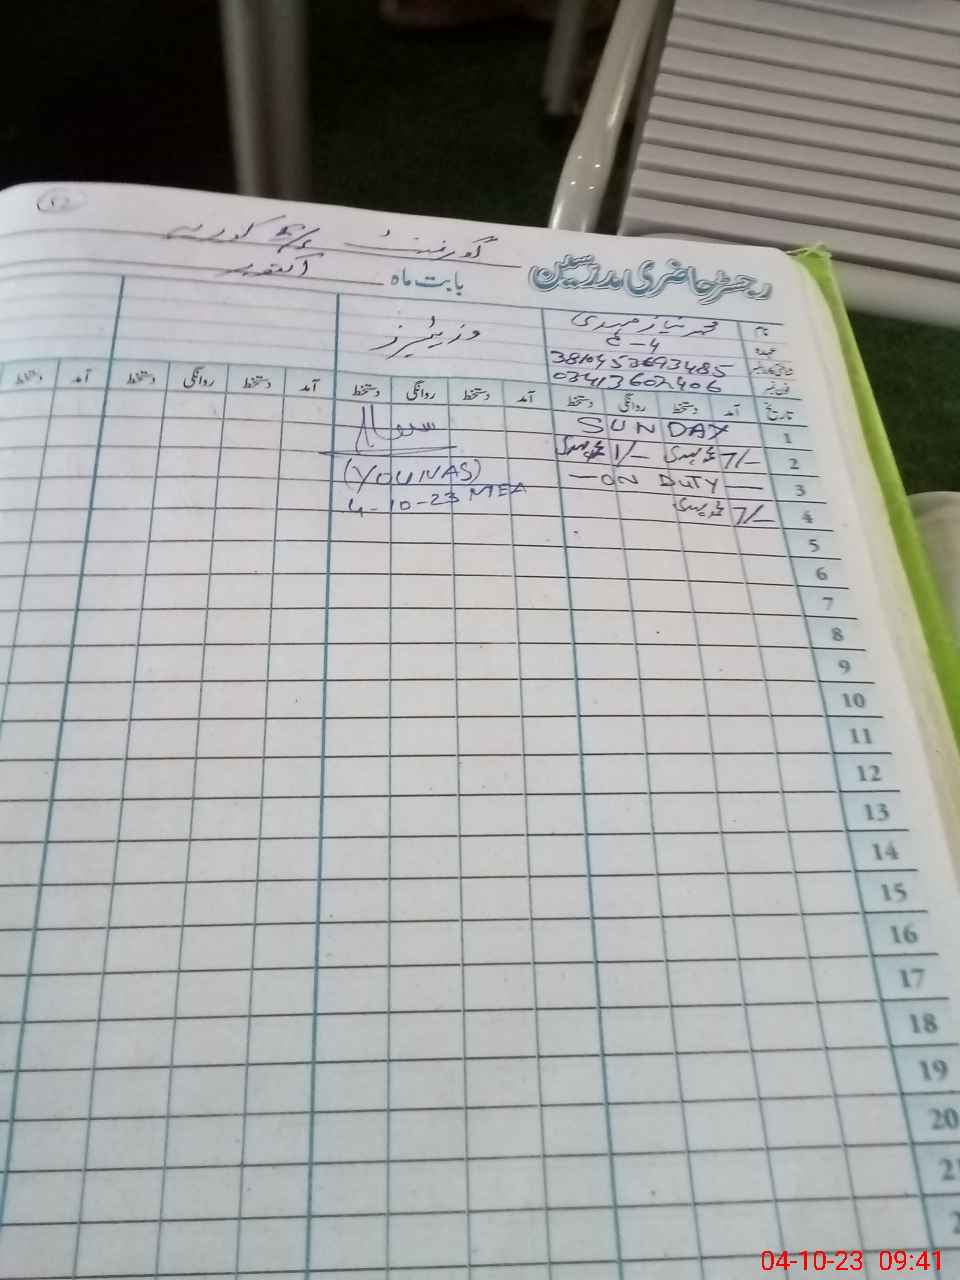 رجسٹر حاضری مدرسین گورنمنٹ
بابت ماہ اکتوبر
نام
عہدہ
فون نمبر
وزیٹرز
3810453693485
03413602406
تاریخ آمد دستخط روانگی دستخط آمد دستخط روانگی دستخط آمد دستخط روانگی دستخط آمد دستخط
1 SUNDAY
2 7/- 1/-
(YOUNAS)
3 — ON DUTY —
4-10-23 MEA
4 7/-
5
6
7
8
9
10
11
12
13
14
15
16
17
18
19
20
04-10-23 09:41